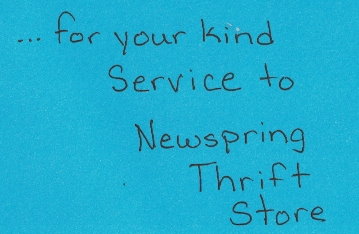 ... for your kind
Service to
Newspring
Thrift
Store